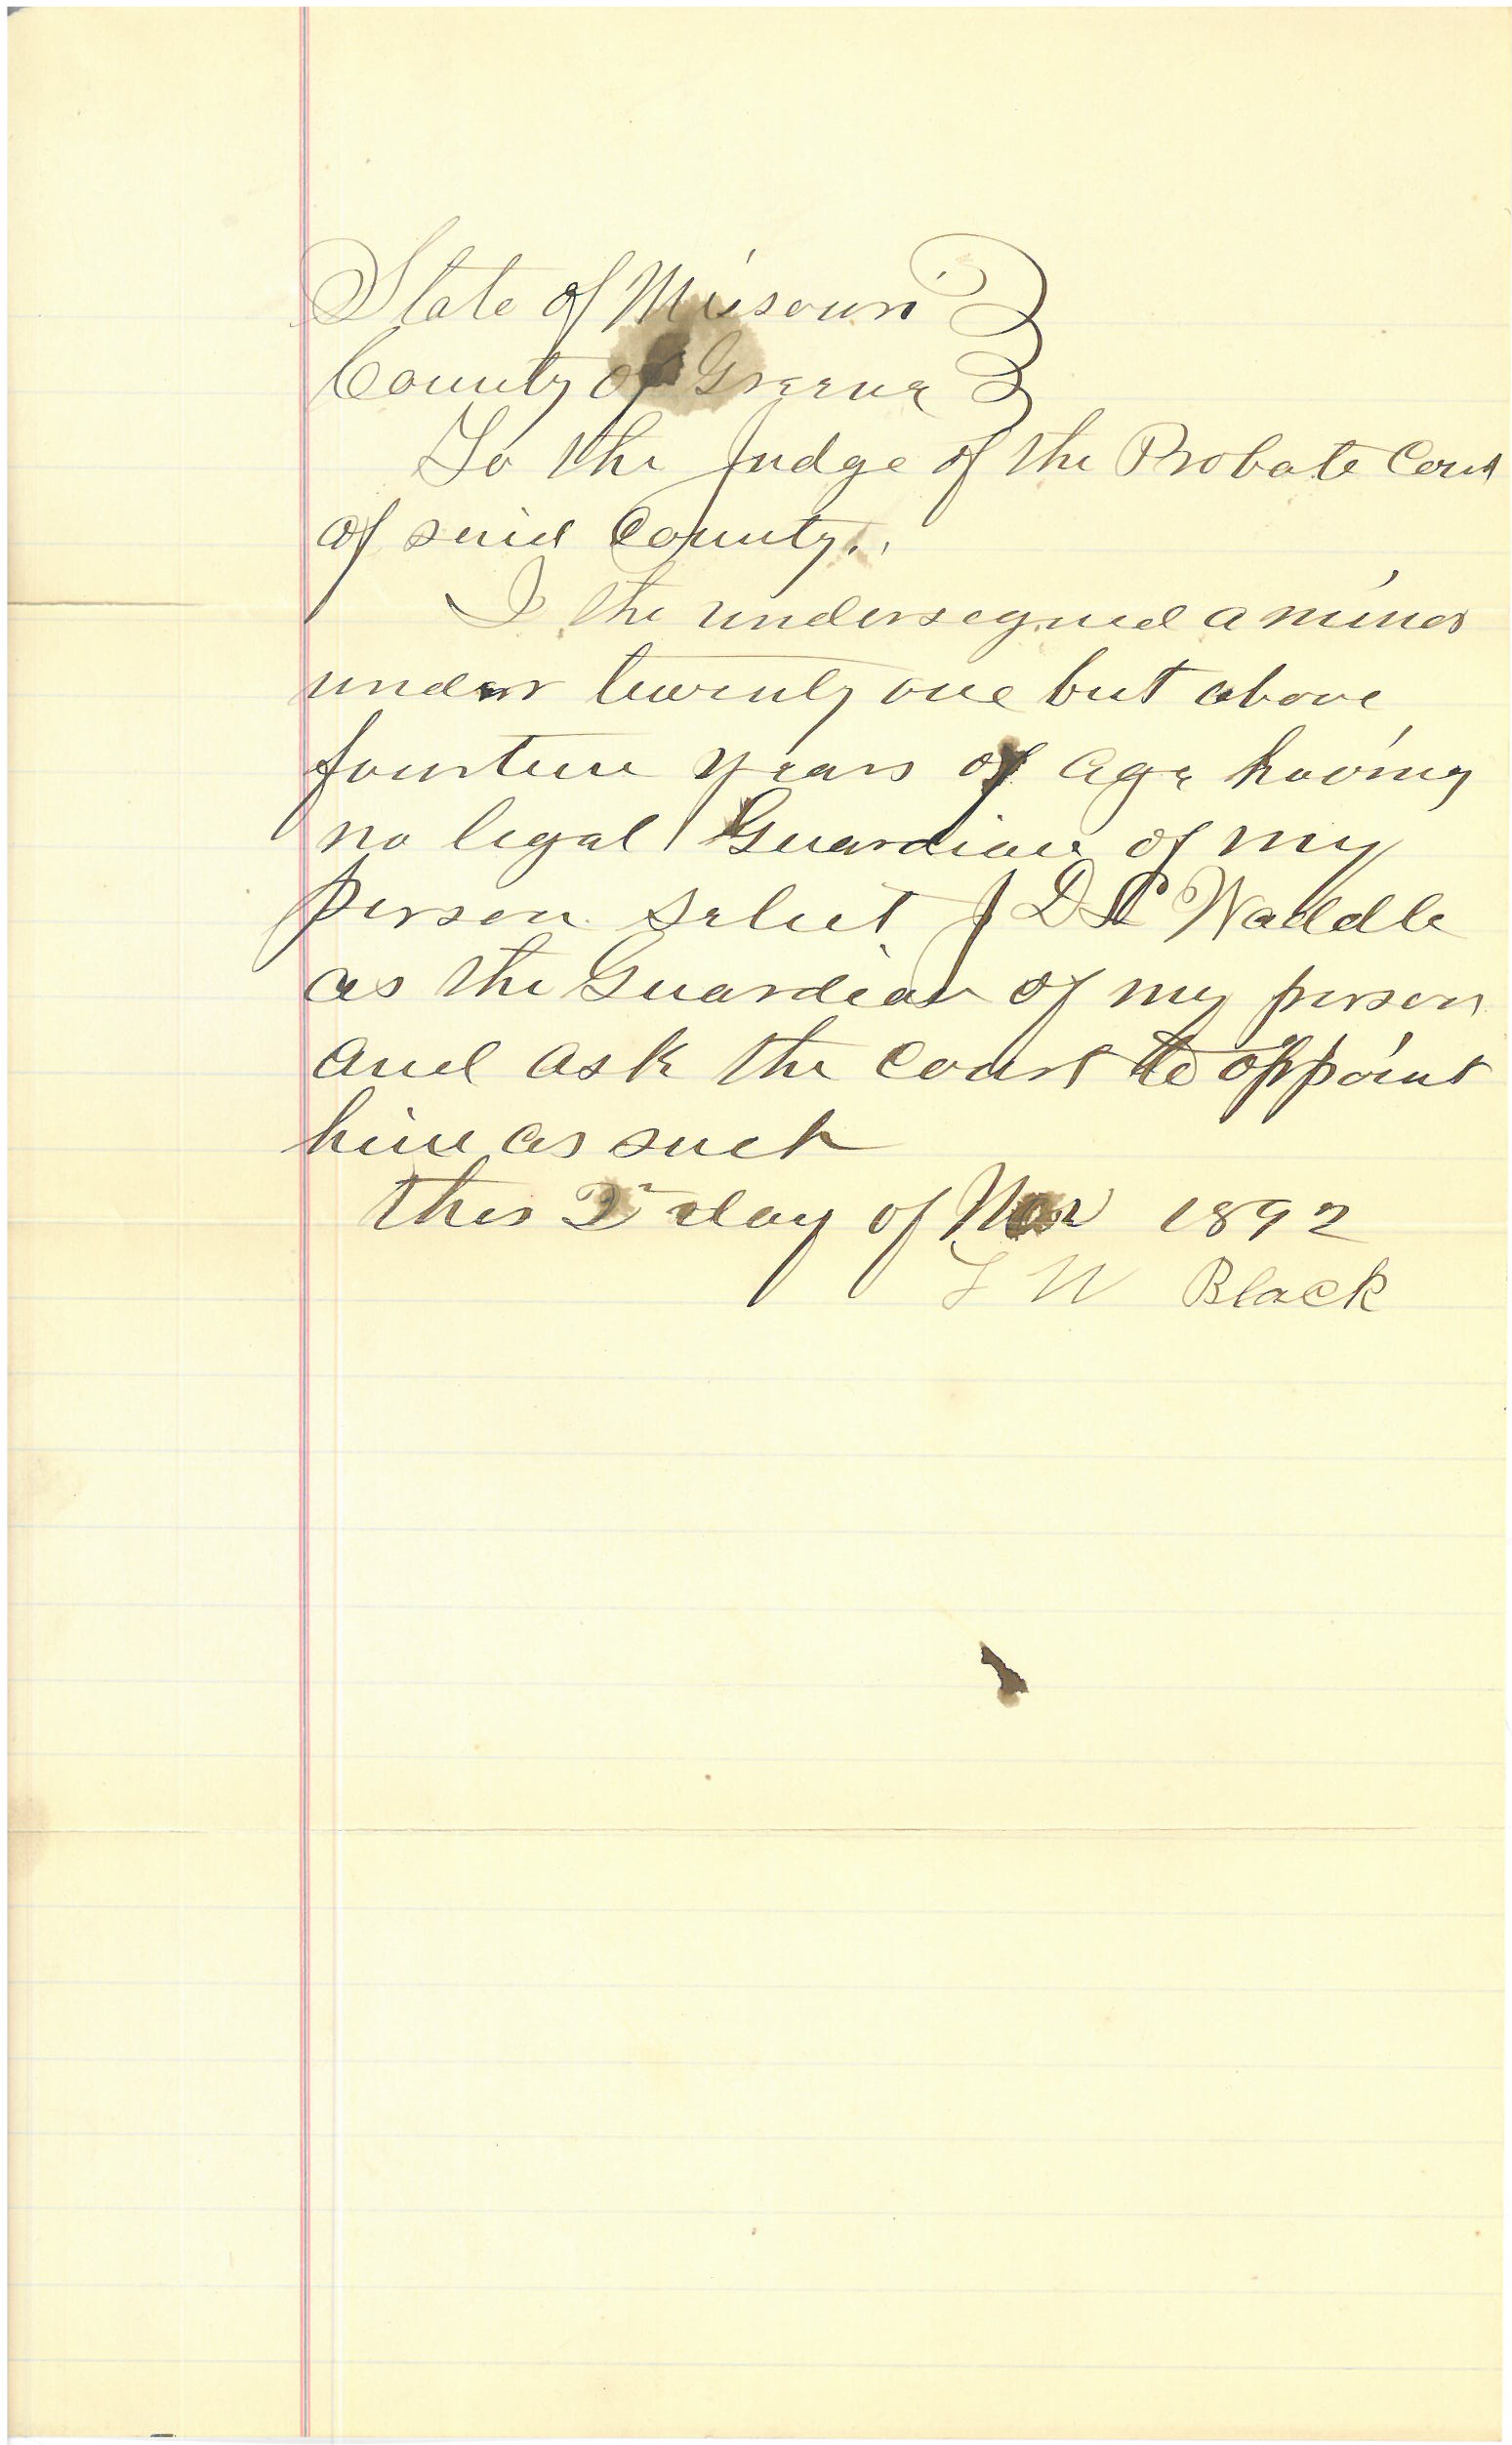 State of Missouri
County of Greene
To the Judge of the Probate Court
of said County.
I the undersigned a minor
under twenty one but above
fourteen years of age having
no legal Guardian of my
person select J D Waddle
as the Guardian of my person
and ask the Court to appoint
him as such
this day of Nov 1892
Black